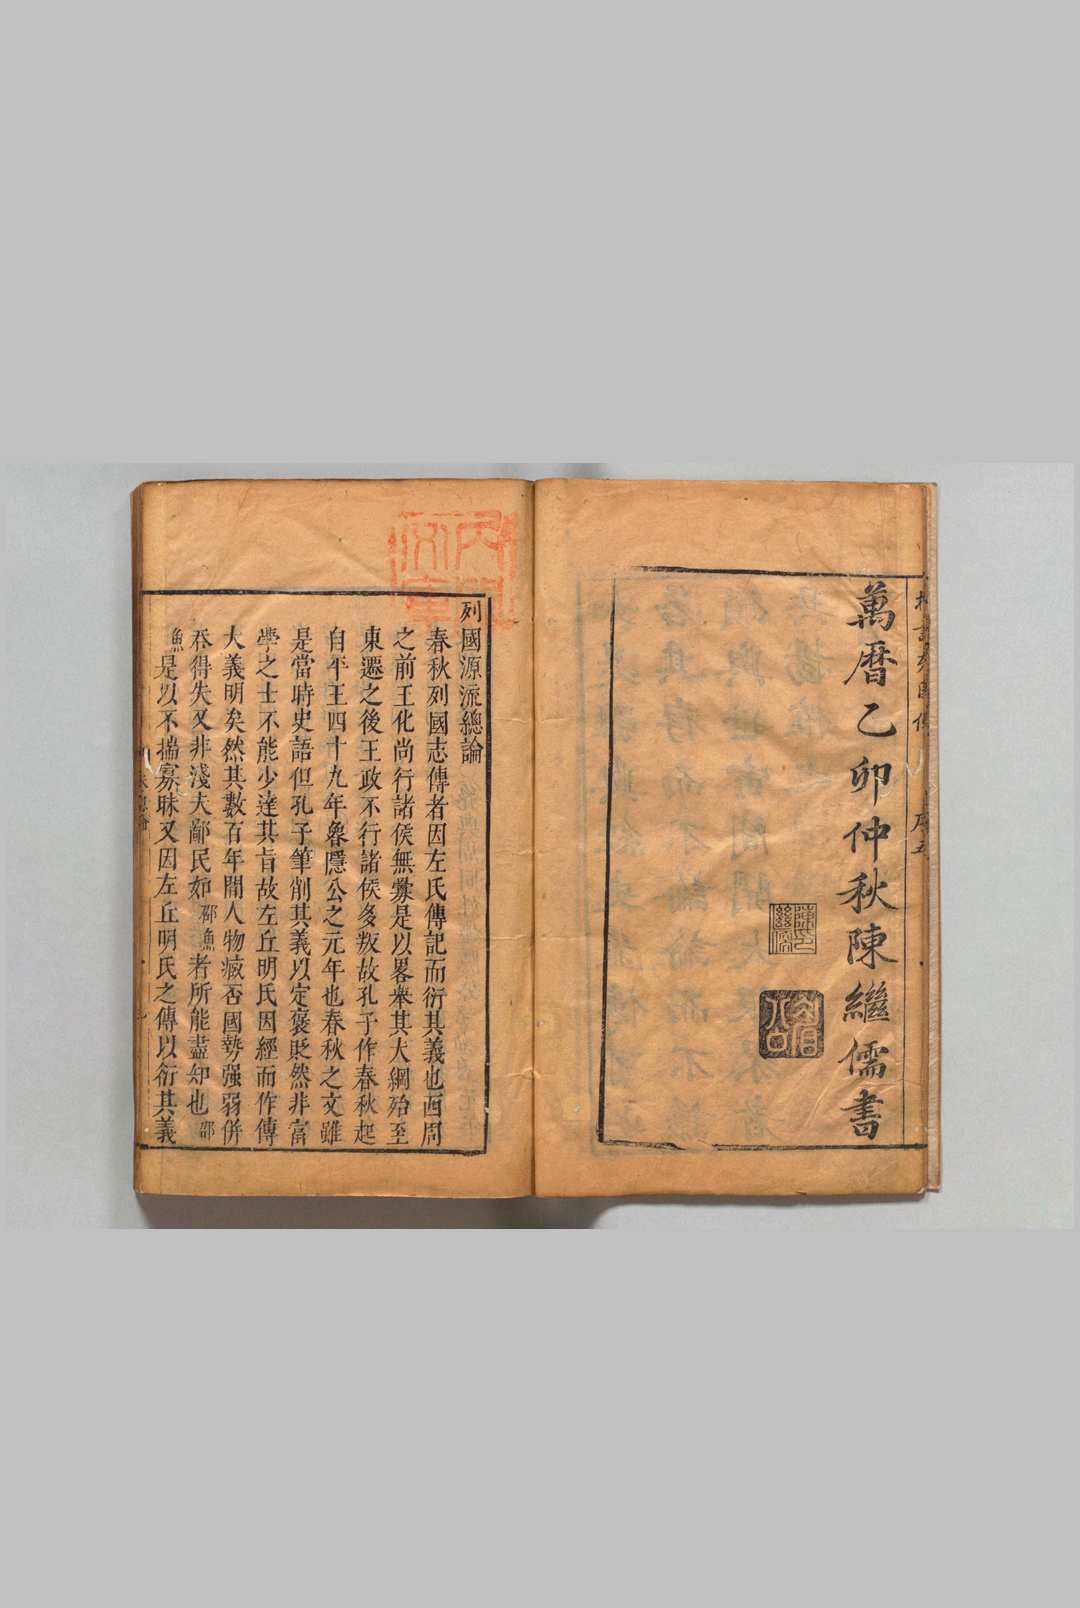 萬曆乙卯仲秋陳繼儒書
列國源流總論
春秋列國志傳者因左氏傳記而衍其義也西周
之前王化尚行諸侯無釁是以畧舉其大綱殆至
東遷之後王政不行諸侯多叛故孔子作春秋起
自平王四十九年魯隱公之元年也春秋之文雖
是當時史語但孔子筆削其義以定褒貶然非當
學之士不能少達其旨故左丘明氏因經而作傳
大義明矣然其數百年間人物臧否國勢强弱併
吞得失又非淺夫鄙民如邵漁者所能盡知也邵
漁是以不揣寡昧又因左丘明氏之傳以衍其義